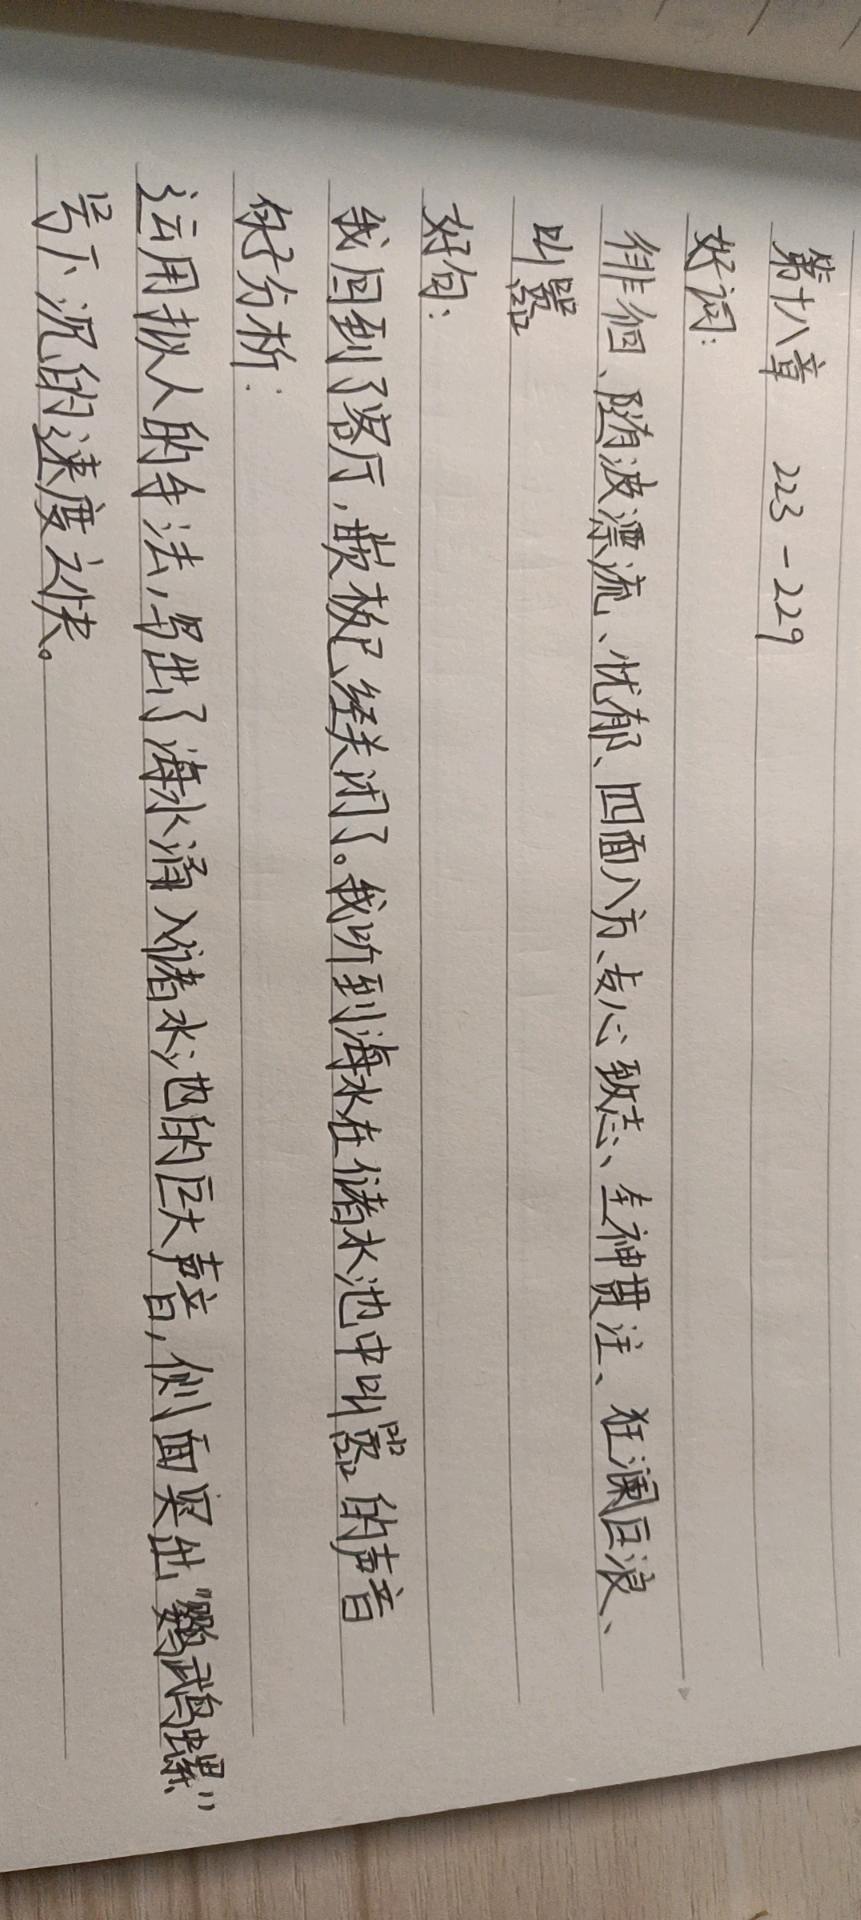 第十八章 223-229
好词:
徘徊、随波漂流、忧郁、四面八方、专心致志、全神贯注、狂澜巨浪、
叫嚣
好句:
我回到了客厅,嵌板已经关闭了。我听到海水在储水池中叫嚣的声音
句子分析:
运用拟人的手法,写出了海水涌入储水池的巨大声音,侧面突出"鹦鹉螺"
号下沉的速度之快。